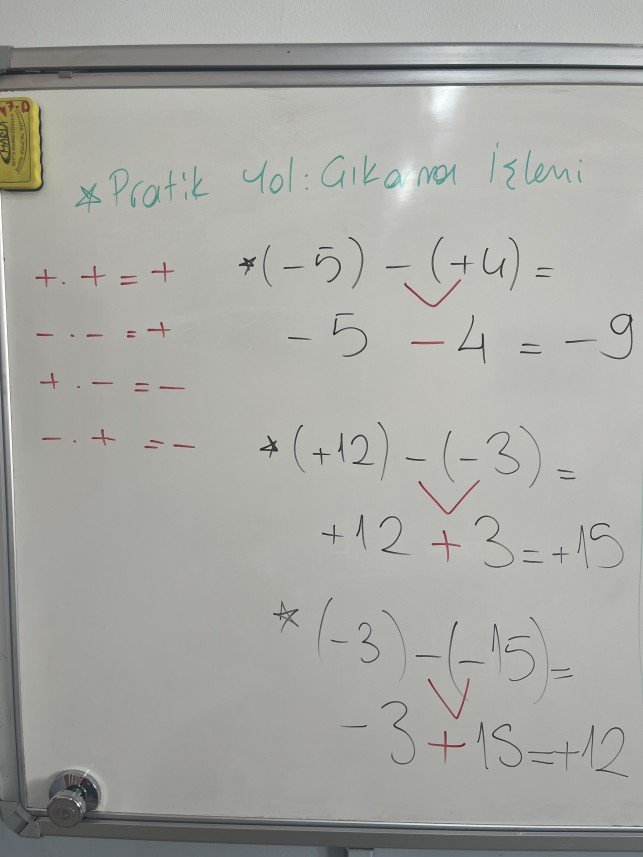 * Pratik Yol: Çıkarma İşlemi
+ . + = +
- . - = +
+ . - = -
- . + = -
* (-5) - (+4) =
-5 - 4 = -9
* (+12) - (-3) =
+12 + 3 = +15
* (-3) - (-15) =
-3 + 15 = +12